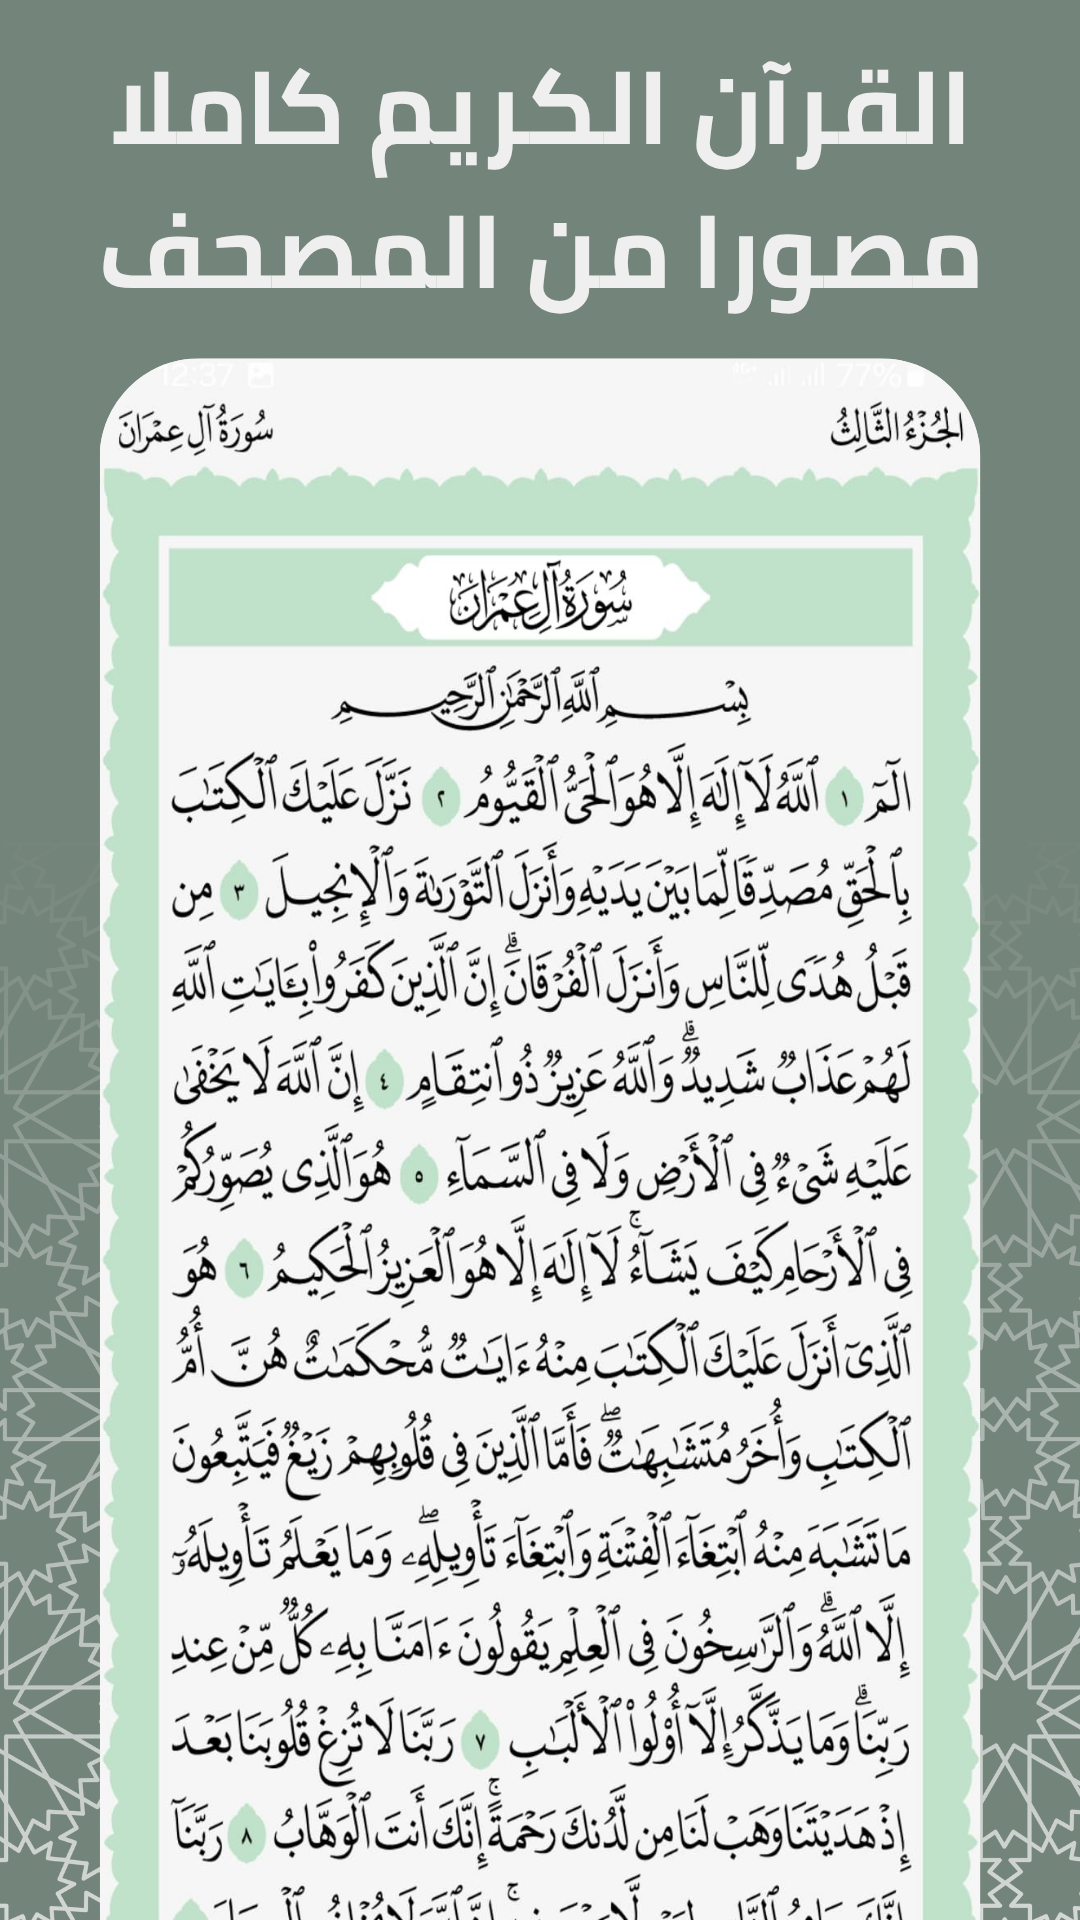 القرآن الكريم كاملا
مصورا من المصحف
12:37 77%
الجُزْءُ الثَّالِثُ سُورَةُ آلِ عِمْرَانَ
سُورَةُ آلِ عِمْرَانَ
بِسْمِ ٱللَّهِ ٱلرَّحْمَٰنِ ٱلرَّحِيمِ
الٓمٓ ١ ٱللَّهُ لَآ إِلَٰهَ إِلَّا هُوَ ٱلْحَىُّ ٱلْقَيُّومُ ٢ نَزَّلَ عَلَيْكَ ٱلْكِتَٰبَ
بِٱلْحَقِّ مُصَدِّقًا لِّمَا بَيْنَ يَدَيْهِ وَأَنزَلَ ٱلتَّوْرَىٰةَ وَٱلْإِنجِيلَ ٣ مِن
قَبْلُ هُدًى لِّلنَّاسِ وَأَنزَلَ ٱلْفُرْقَانَ ۗ إِنَّ ٱلَّذِينَ كَفَرُوا۟ بِـَٔايَٰتِ ٱللَّهِ
لَهُمْ عَذَابٌ شَدِيدٌ ۗ وَٱللَّهُ عَزِيزٌ ذُو ٱنتِقَامٍ ٤ إِنَّ ٱللَّهَ لَا يَخْفَىٰ
عَلَيْهِ شَىْءٌ فِى ٱلْأَرْضِ وَلَا فِى ٱلسَّمَآءِ ٥ هُوَ ٱلَّذِى يُصَوِّرُكُمْ
فِى ٱلْأَرْحَامِ كَيْفَ يَشَآءُ ۚ لَآ إِلَٰهَ إِلَّا هُوَ ٱلْعَزِيزُ ٱلْحَكِيمُ ٦ هُوَ
ٱلَّذِىٓ أَنزَلَ عَلَيْكَ ٱلْكِتَٰبَ مِنْهُ ءَايَٰتٌ مُّحْكَمَٰتٌ هُنَّ أُمُّ
ٱلْكِتَٰبِ وَأُخَرُ مُتَشَٰبِهَٰتٌ ۖ فَأَمَّا ٱلَّذِينَ فِى قُلُوبِهِمْ زَيْغٌ فَيَتَّبِعُونَ
مَا تَشَٰبَهَ مِنْهُ ٱبْتِغَآءَ ٱلْفِتْنَةِ وَٱبْتِغَآءَ تَأْوِيلِهِۦ ۖ وَمَا يَعْلَمُ تَأْوِيلَهُۥٓ
إِلَّا ٱللَّهُ ۗ وَٱلرَّٰسِخُونَ فِى ٱلْعِلْمِ يَقُولُونَ ءَامَنَّا بِهِۦ كُلٌّ مِّنْ عِندِ
رَبِّنَا ۗ وَمَا يَذَّكَّرُ إِلَّآ أُو۟لُوا۟ ٱلْأَلْبَٰبِ ٧ رَبَّنَا لَا تُزِغْ قُلُوبَنَا بَعْدَ
إِذْ هَدَيْتَنَا وَهَبْ لَنَا مِن لَّدُنكَ رَحْمَةً ۚ إِنَّكَ أَنتَ ٱلْوَهَّابُ ٨ رَبَّنَآ